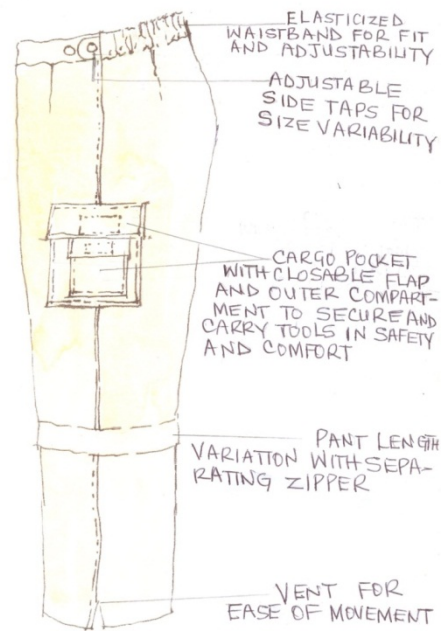 ELASTICIZED
WAISTBAND FOR FIT
AND ADJUSTABILITY
ADJUSTABLE
SIDE TAPS FOR
SIZE VARIABILITY
CARGO POCKET
WITH CLOSABLE FLAP
AND OUTER COMPART-
MENT TO SECURE AND
CARRY TOOLS IN SAFETY
AND COMFORT
PANT LENGTH
VARIATION WITH SEPA-
RATING ZIPPER
VENT FOR
EASE OF MOVEMENT